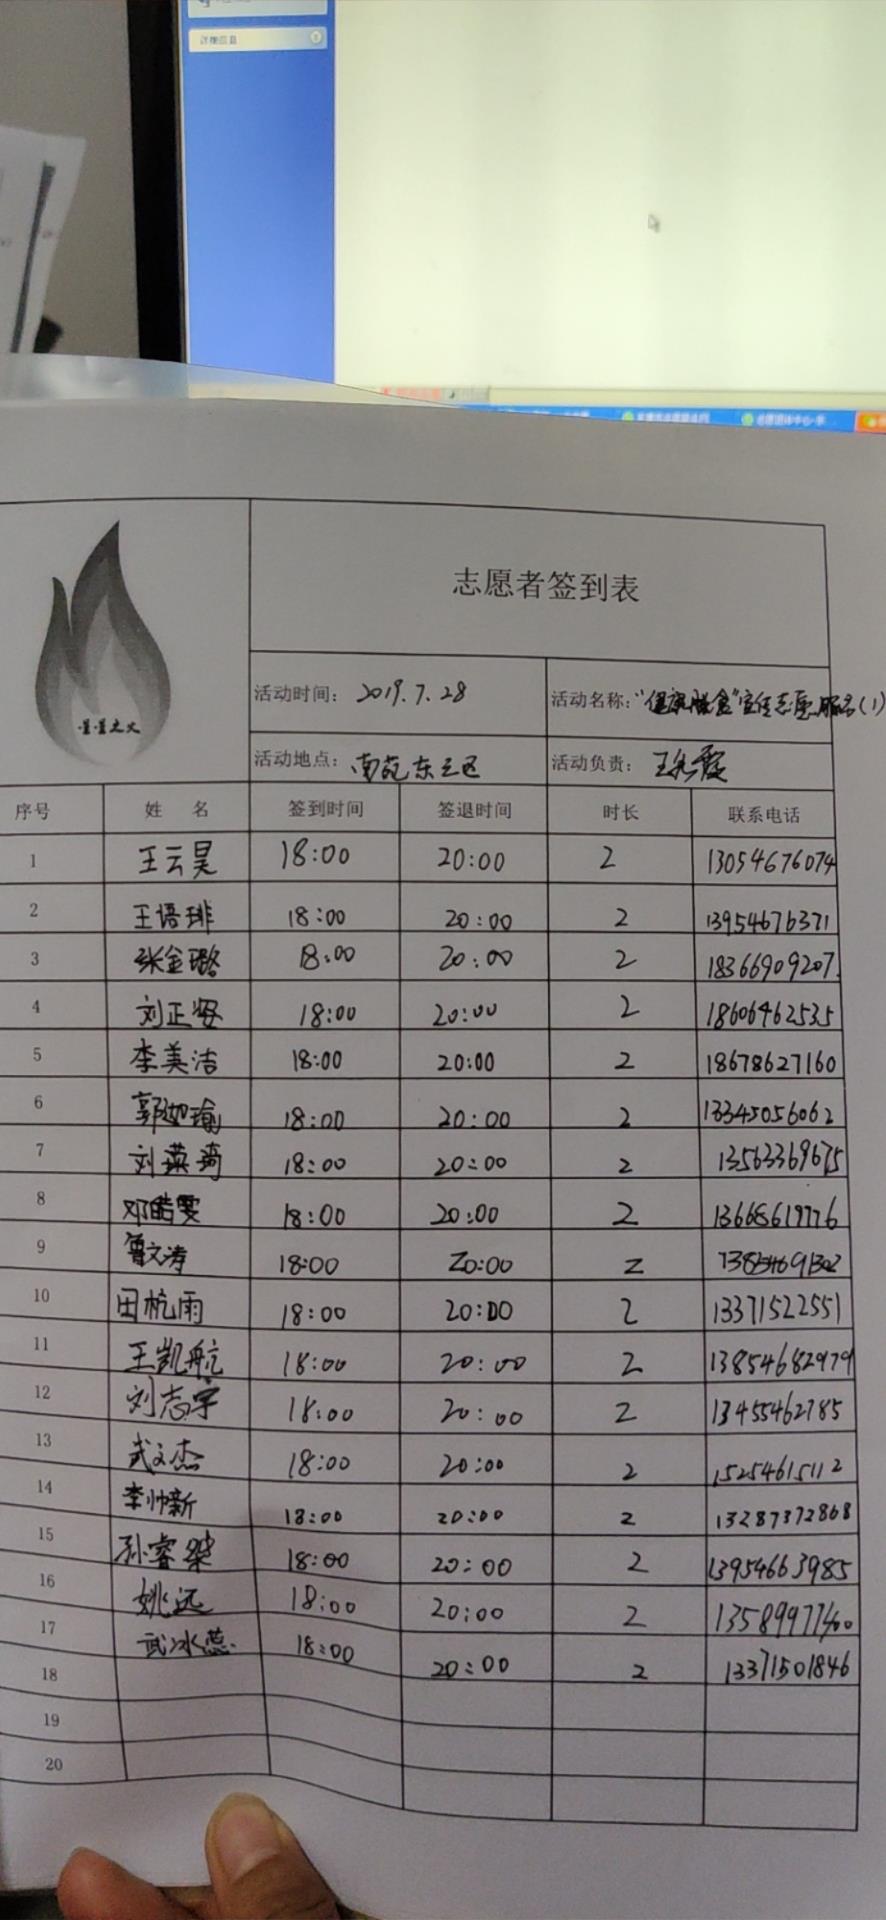 详细信息
志愿者签到表
星星之火
活动时间： 2019.7.28 活动名称：“健康膳食”宣传志愿服务(1)
活动地点： 南苑东三区 活动负责：
序号 姓 名 签到时间 签退时间 时长 联系电话
1 王云昊 18:00 20:00 2 13054676074
2 王语琲 18:00 20:00 2 13954676371
3 张金璐 18:00 20:00 2 18366909207
4 刘正安 18:00 20:00 2 18606462535
5 李美洁 18:00 20:00 2 18678627160
6 郭迦瑜 18:00 20:00 2 13345056062
7 刘蕊琦 18:00 20:00 2 13563369675
8 邓皓雯 18:00 20:00 2 13668619776
9 鲁文涛 18:00 20:00 2 13854691302
10 田杭雨 18:00 20:00 2 13371522551
11 王凯航 18:00 20:00 2 13854682979
12 刘志宇 18:00 20:00 2 13455462785
13 武文杰 18:00 20:00 2 15254615112
14 李帅新 18:00 20:00 2 13287372868
15 孙睿桀 18:00 20:00 2 13954663985
16 姚远 18:00 20:00 2
17 武冰蕊 18:00 20:00 2 13371501846
18
19
20